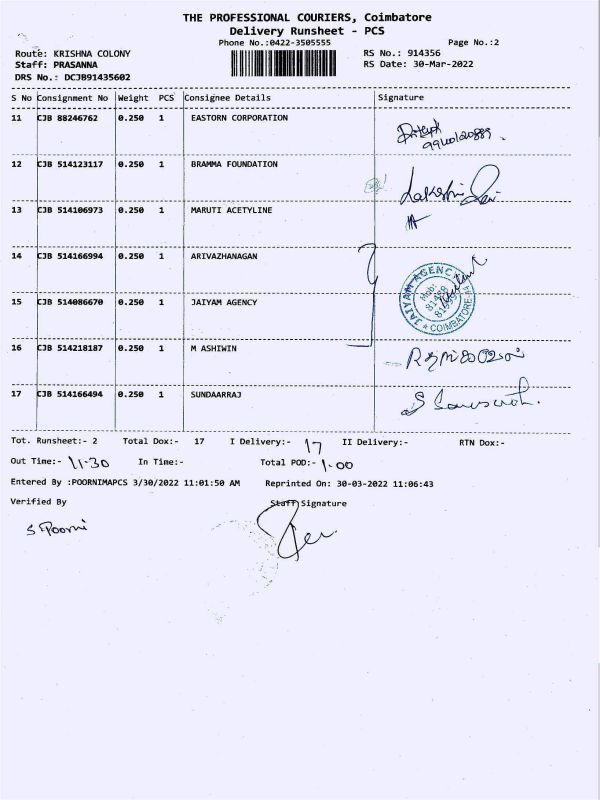 THE PROFESSIONAL COURIERS, Coimbatore
Delivery Runsheet - PCS
Phone No.:0422-3505555
Page No.:2
Route: KRISHNA COLONY
RS No.: 914356
Staff: PRASANNA
RS Date: 30-Mar-2022
DRS No.: DCJB91435602
S No Consignment No Weight PCS Consignee Details Signature
11 CJB 88246762 0.250 1 EASTORN CORPORATION
12 CJB 514123117 0.250 1 BRAMMA FOUNDATION
13 CJB 514106973 0.250 1 MARUTI ACETYLINE
14 CJB 514166994 0.250 1 ARIVAZHANAGAN
JAIYAM AGENCY
COIMBATORE
15 CJB 514086670 0.250 1 JAIYAM AGENCY
16 CJB 514218187 0.250 1 M ASHIWIN
17 CJB 514166494 0.250 1 SUNDAARRAJ
Tot. Runsheet:- 2 Total Dox:- 17 I Delivery:- 17 II Delivery:- RTN Dox:-
Out Time:- 11-30 In Time:- Total POD:- 1-00
Entered By :POORNIMAPCS 3/30/2022 11:01:50 AM Reprinted On: 30-03-2022 11:06:43
Verified By Staff Signature
S Poorni